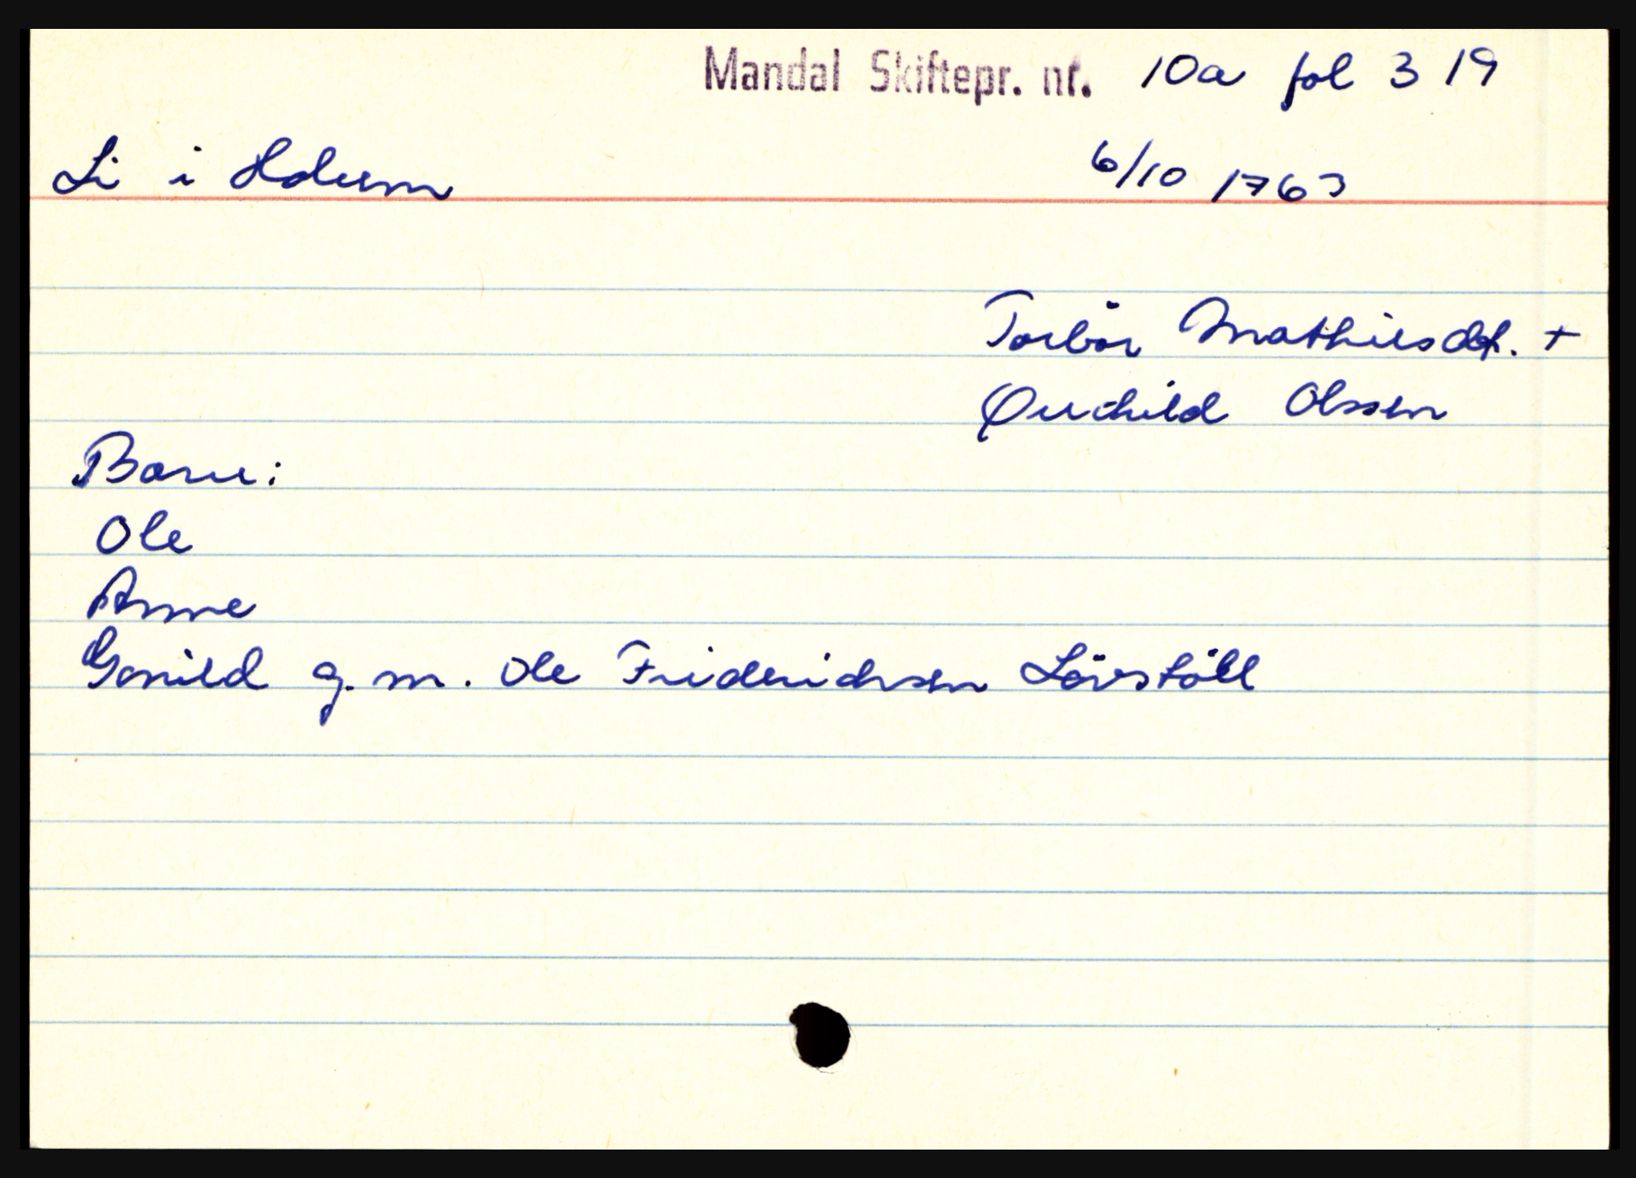 Mandal Skiftepr. nr. 10a fol 319
Li i Holum 6/10 1763
Torbör Mathiesdtr. +
Olsen
Barn:
Ole
Anne
Gonild g.m. Ole Friderichsen Lövstöll